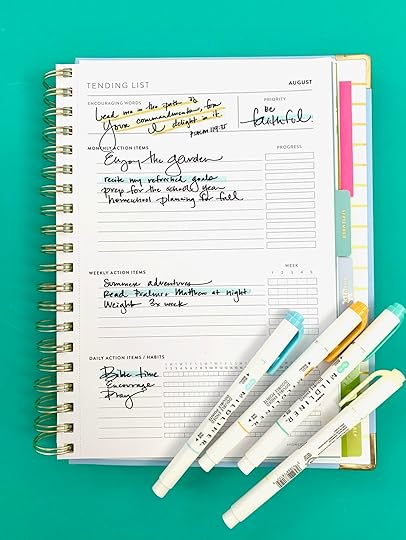 TENDING LIST
AUGUST
ENCOURAGING WORDS
Lead me in the path of
Your commandments, for
I delight in it.
PSALM 119:35
PRIORITY
Be
faithful.
MONTHLY ACTION ITEMS
PROGRESS
Enjoy the garden
recite my refreshed goals
prep for the school year
homeschool planning for fall
WEEKLY ACTION ITEMS
WEEK
1 2 3 4 5
Summer adventures
Read Psalms + Matthew at night
Weights 3x week
DAILY ACTION ITEMS / HABITS
Bible time
Encourage
Pray
SEPTEMBER
MILDLINER
MILDLINER
MILDLINER
MILDLINER